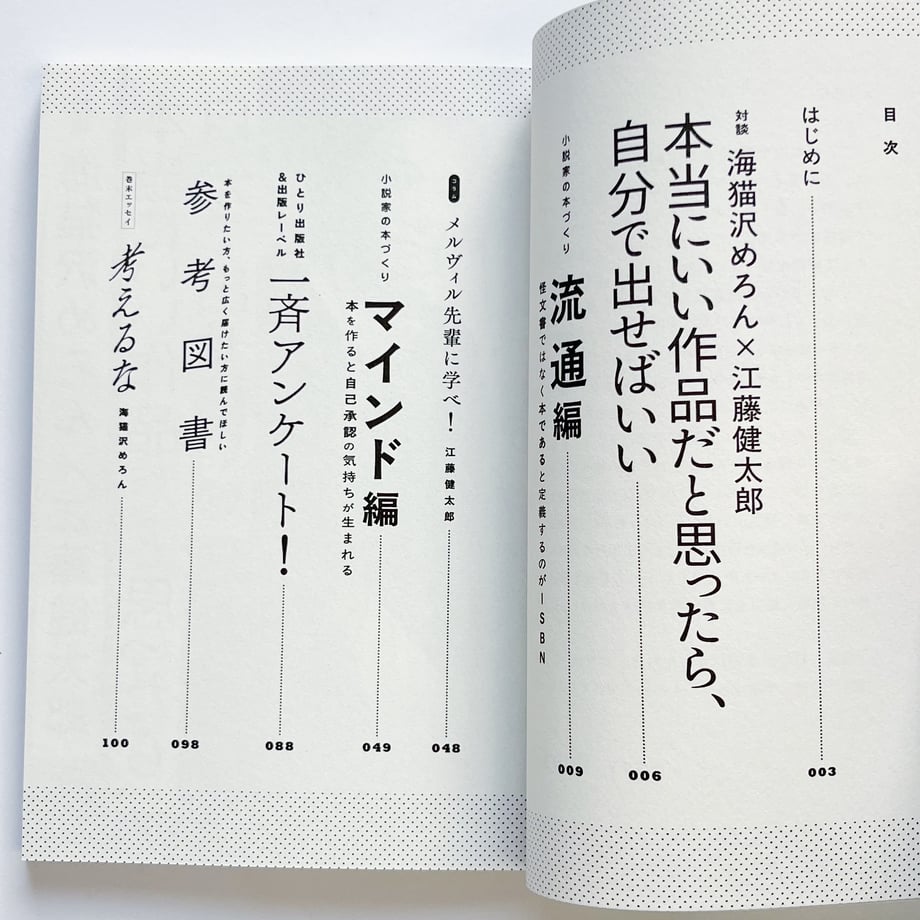 目次
はじめに
003
対談 海猫沢めろん×江藤健太郎
本当にいい作品だと思ったら、
自分で出せばいい
006
小説家の本づくり 流通編
怪文書ではなく本であると定義するのがISBN
009
コラム メルヴィル先輩に学べ! 江藤健太郎
048
小説家の本づくり マインド編
本を作ると自己承認の気持ちが生まれる
049
ひとり出版社
&出版レーベル
一斉アンケート!
088
本を作りたい方、もっと広く届けたい方に読んでほしい
参考図書
098
巻末エッセイ 考えるな 海猫沢めろん
100